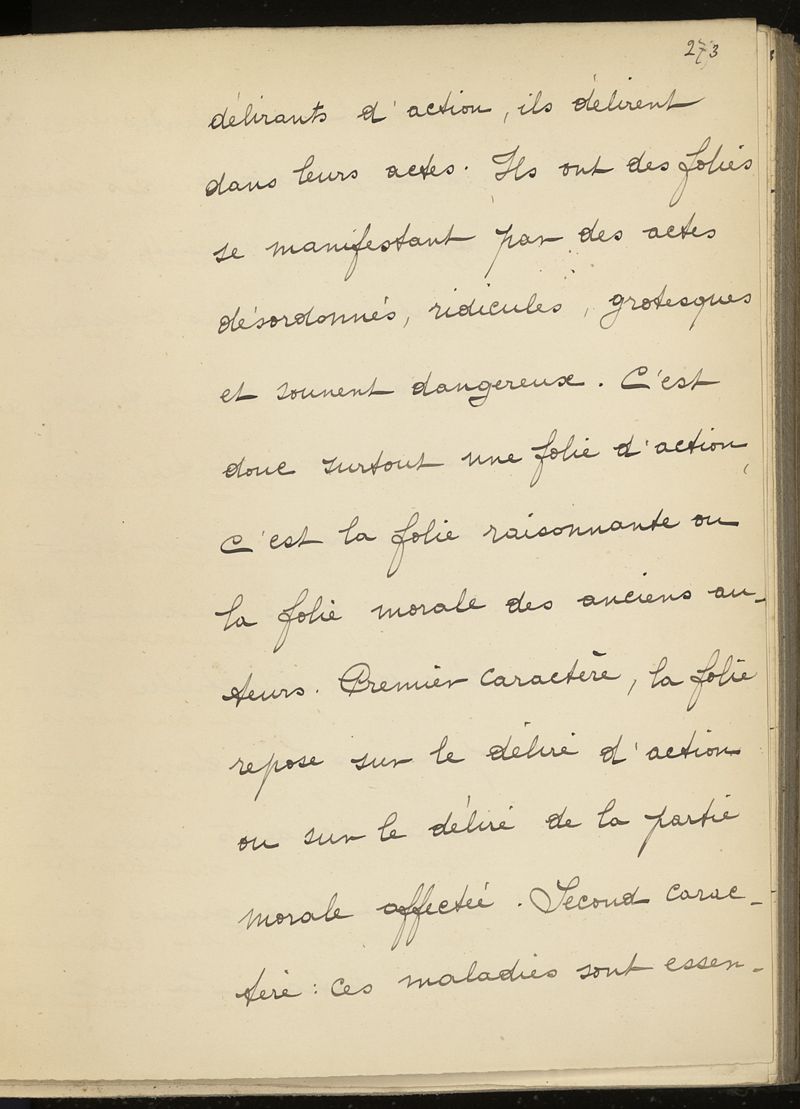 273
délirants d'action, ils délirent
dans leurs actes. Ils ont des folies
se manifestant par des actes
désordonnés, ridicules, grotesques
et souvent dangereux. C'est
donc surtout une folie d'action,
C'est la folie raisonnante ou
la folie morale des anciens au-
teurs. Premier caractère, la folie
repose sur le délire d'action
ou sur le délire de la partie
morale affectée. Second carac-
tère : ces maladies sont essen-